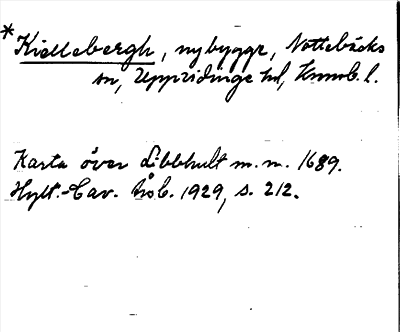 *Kiellebergh, nybygge, Nottebäcks
sn, Uppvidinge hd, Kronob. l.
Karta över Libbhult m.m. 1689.
Hylt.-Cav. årsb. 1929, s. 212.